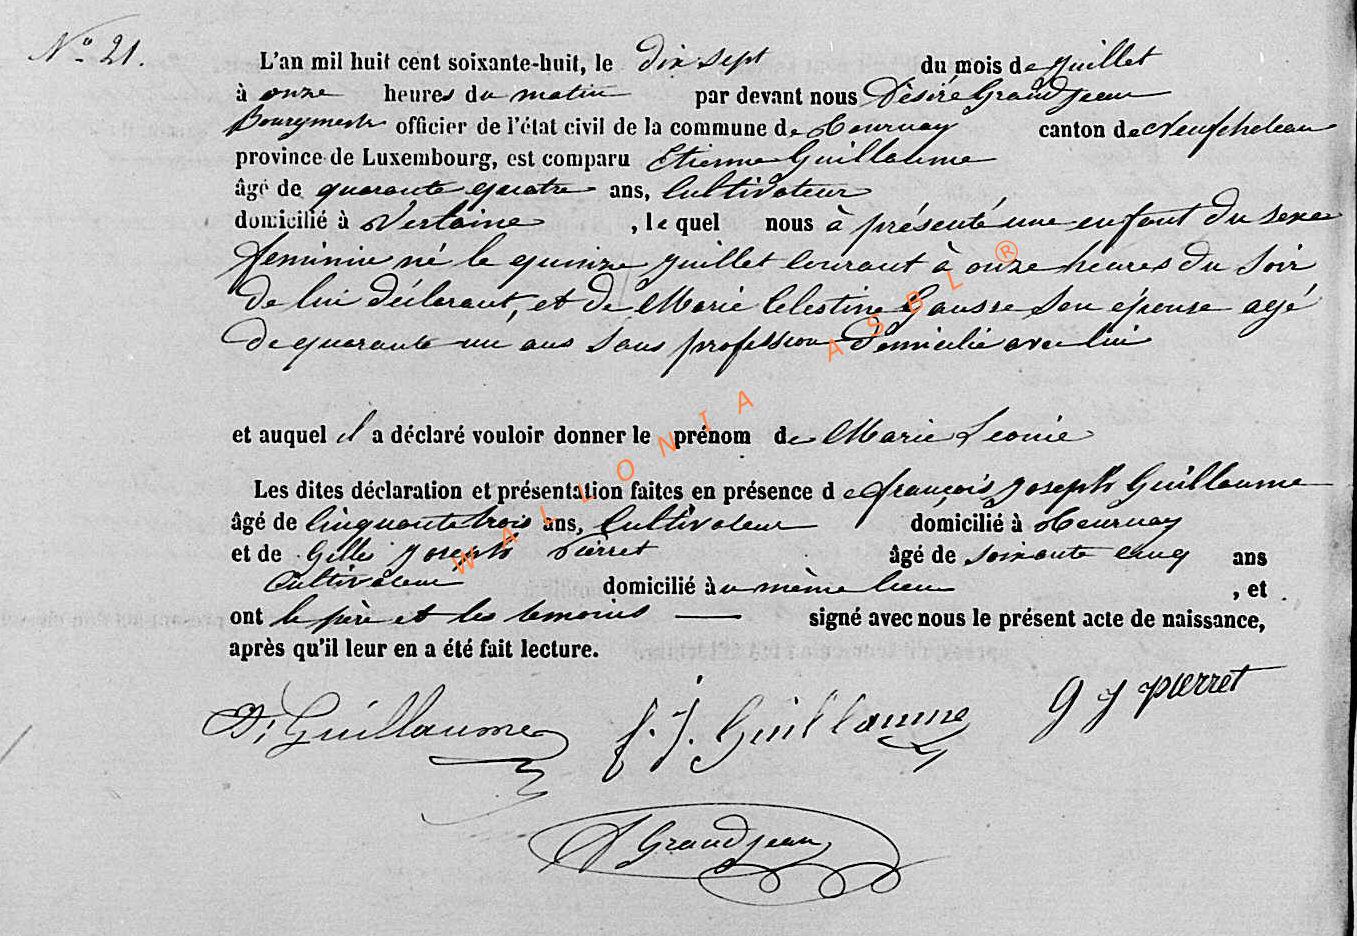 N° 21.
L'an mil huit cent soixante-huit, le dix sept du mois de juillet
à onze heures du matin par devant nous Désiré Grandjean
Bourgmestre officier de l'état civil de la commune de Tournay canton de Neufchateau
province de Luxembourg, est comparu Etienne Guillaume
âgé de quarante quatre ans, Cultivateur
domicilié à Verlaine , le quel nous à présenté une enfant du sexe
féminin né le quinze juillet courant à onze heures du soir
de lui déclarant, et de Marie Celestine Gausse son épouse agé
de quarante un ans sans profession domicilié avec lui
et auquel il a déclaré vouloir donner le prénom de Marie Leonie
Les dites déclaration et présentation faites en présence de françois Joseph Guillaume
âgé de Cinquante trois ans, Cultivateur domicilié à Tournay
et de Gilles Joseph Pierret âgé de soixante cinq ans
Cultivateur domicilié au même lieu , et
ont le père et les temoins — signé avec nous le présent acte de naissance,
après qu'il leur en a été fait lecture.
Guillaume f. j. Guillaume g j pierret
Grandjean
WALLONIA ASBL ®